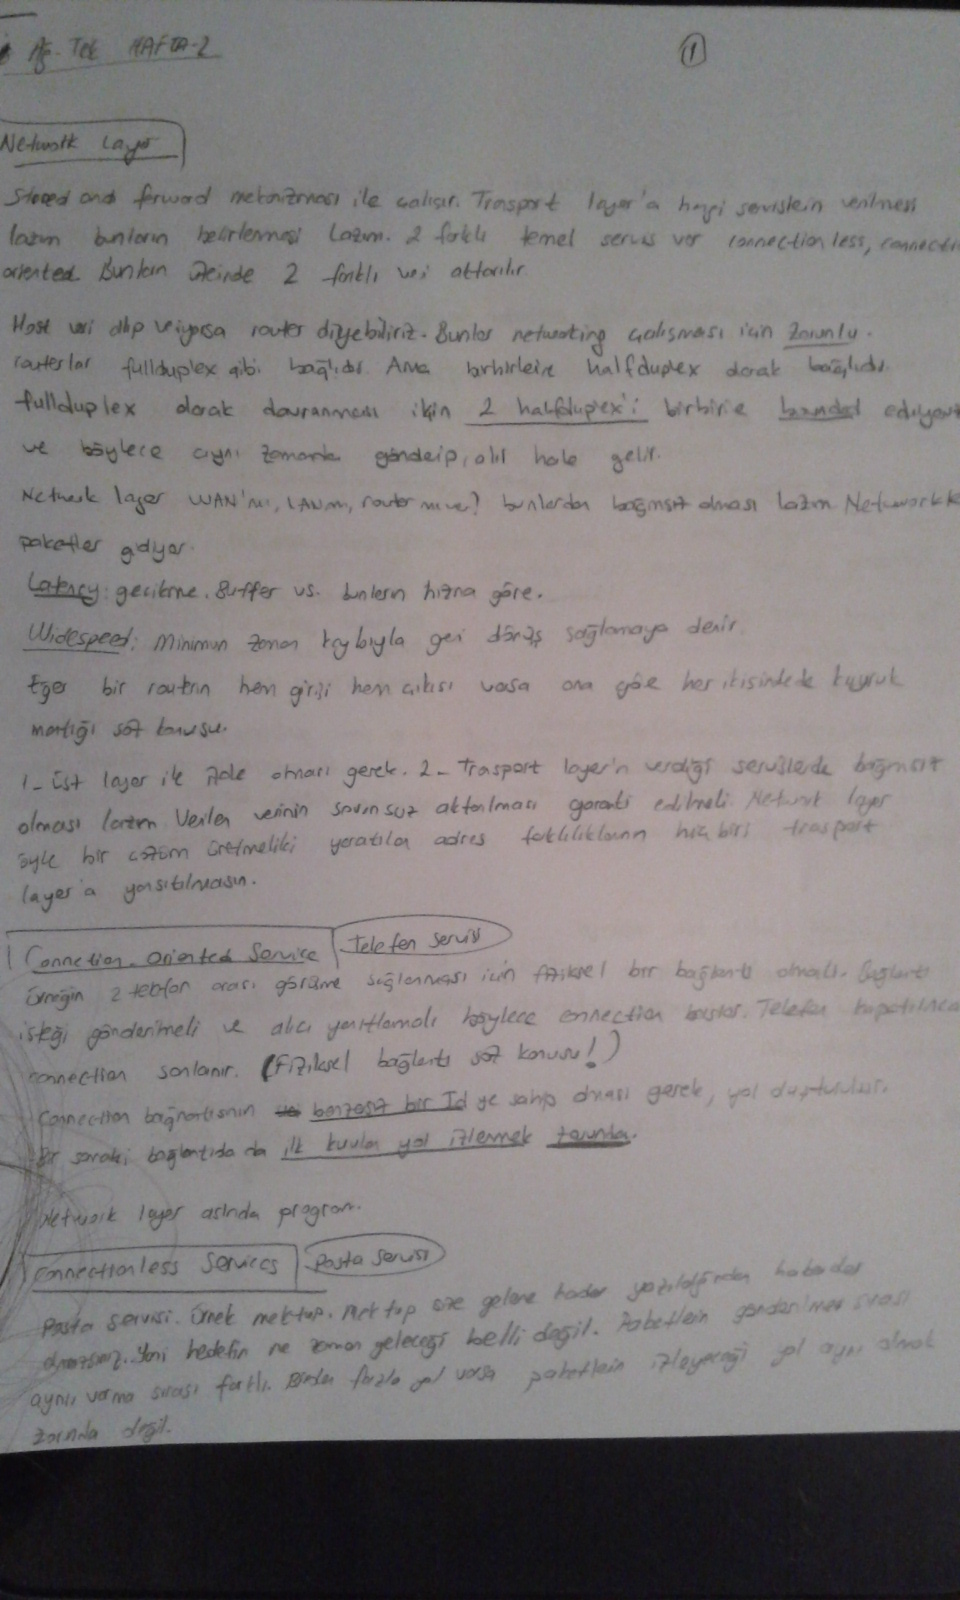 Ağ. Tek HAFTA-2
1
Network Layer
Stored and forward mekanizması ile çalışır. Transport layer'a hangi servislerin verilmesi
lazım bunların belirlenmesi lazım. 2 farklı temel servis var connectionless, connection
oriented. Bunların üzerinde 2 farklı veri aktarılır.
Host veri alıp veriyorsa router diyebiliriz. Bunlar networking çalışması için zorunlu.
routerlar fullduplex gibi bağlıdır. Ama birbirlerine halfduplex olarak bağlıdır.
fullduplex olarak davranması için 2 halfduplex'i birbirine ediyoruz
ve böylece aynı zamanda gönderip, alır hale gelir.
Network layer WAN'mı, LAN mı, router mı var? bunlardan bağımsız olması lazım. Networkte
paketler gidiyor.
Latency: gecikme. Buffer vs. bunların hızına göre.
Widespeed: Minimum zaman kaybıyla geri dönüş sağlamaya denir.
Eğer bir routerın hem girişi hem çıkışı varsa ona göre her ikisindede kuyruk
mantığı söz konusu.
1- Üst layer ile izole olması gerek. 2- Trasport layer'ın verdiği servislerde bağımsız
olması lazım. Verilen verinin sorunsuz aktarılması garanti edilmeli. Network layer
öyle bir çözüm üretmeliki yaratılan adres farklılıklarının hiç biri trasport
layer'a yansıtılmasın.
Connection-oriented Service Telefon servisi
Örneğin 2 telefon arası görüşme sağlanması için fiziksel bir bağlantı olmalı. Bağlantı
isteği gönderilmeli ve alıcı yanıtlamalı böylece connection başlar. Telefon kapatılınca
connection sonlanır. (Fiziksel bağlantı söz konusu!)
Connection bağlantısının benzersiz bir Id ye sahip olması gerek, yol oluşturulur.
Bir sonraki bağlantıda da ilk kurulan yol izlenmek zorunda.
Network layer aslında program.
Connectionless Services Posta servisi
Posta servisi. Örnek mektup. Mektup size gelene kadar yazıldığından haberdar
olmazsınız. Yani hedefin ne zaman geleceği belli değil. Paketlerin gönderilme sırası
aynı, varma sırası farklı. Birden fazla yol varsa paketlerin izleyeceği yol aynı olmak
zorunda değil.